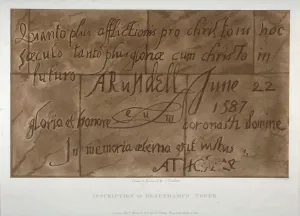 Quanto plus afflictionis pro christo in hoc
sæculo tanto plus gloriæ cum christo in
futuro ARundell June 22
1587
gloria et honore eum coronasti domine
In memoria æterna erit iustus
INSCRIPTION in BEAUCHAMP TOWER